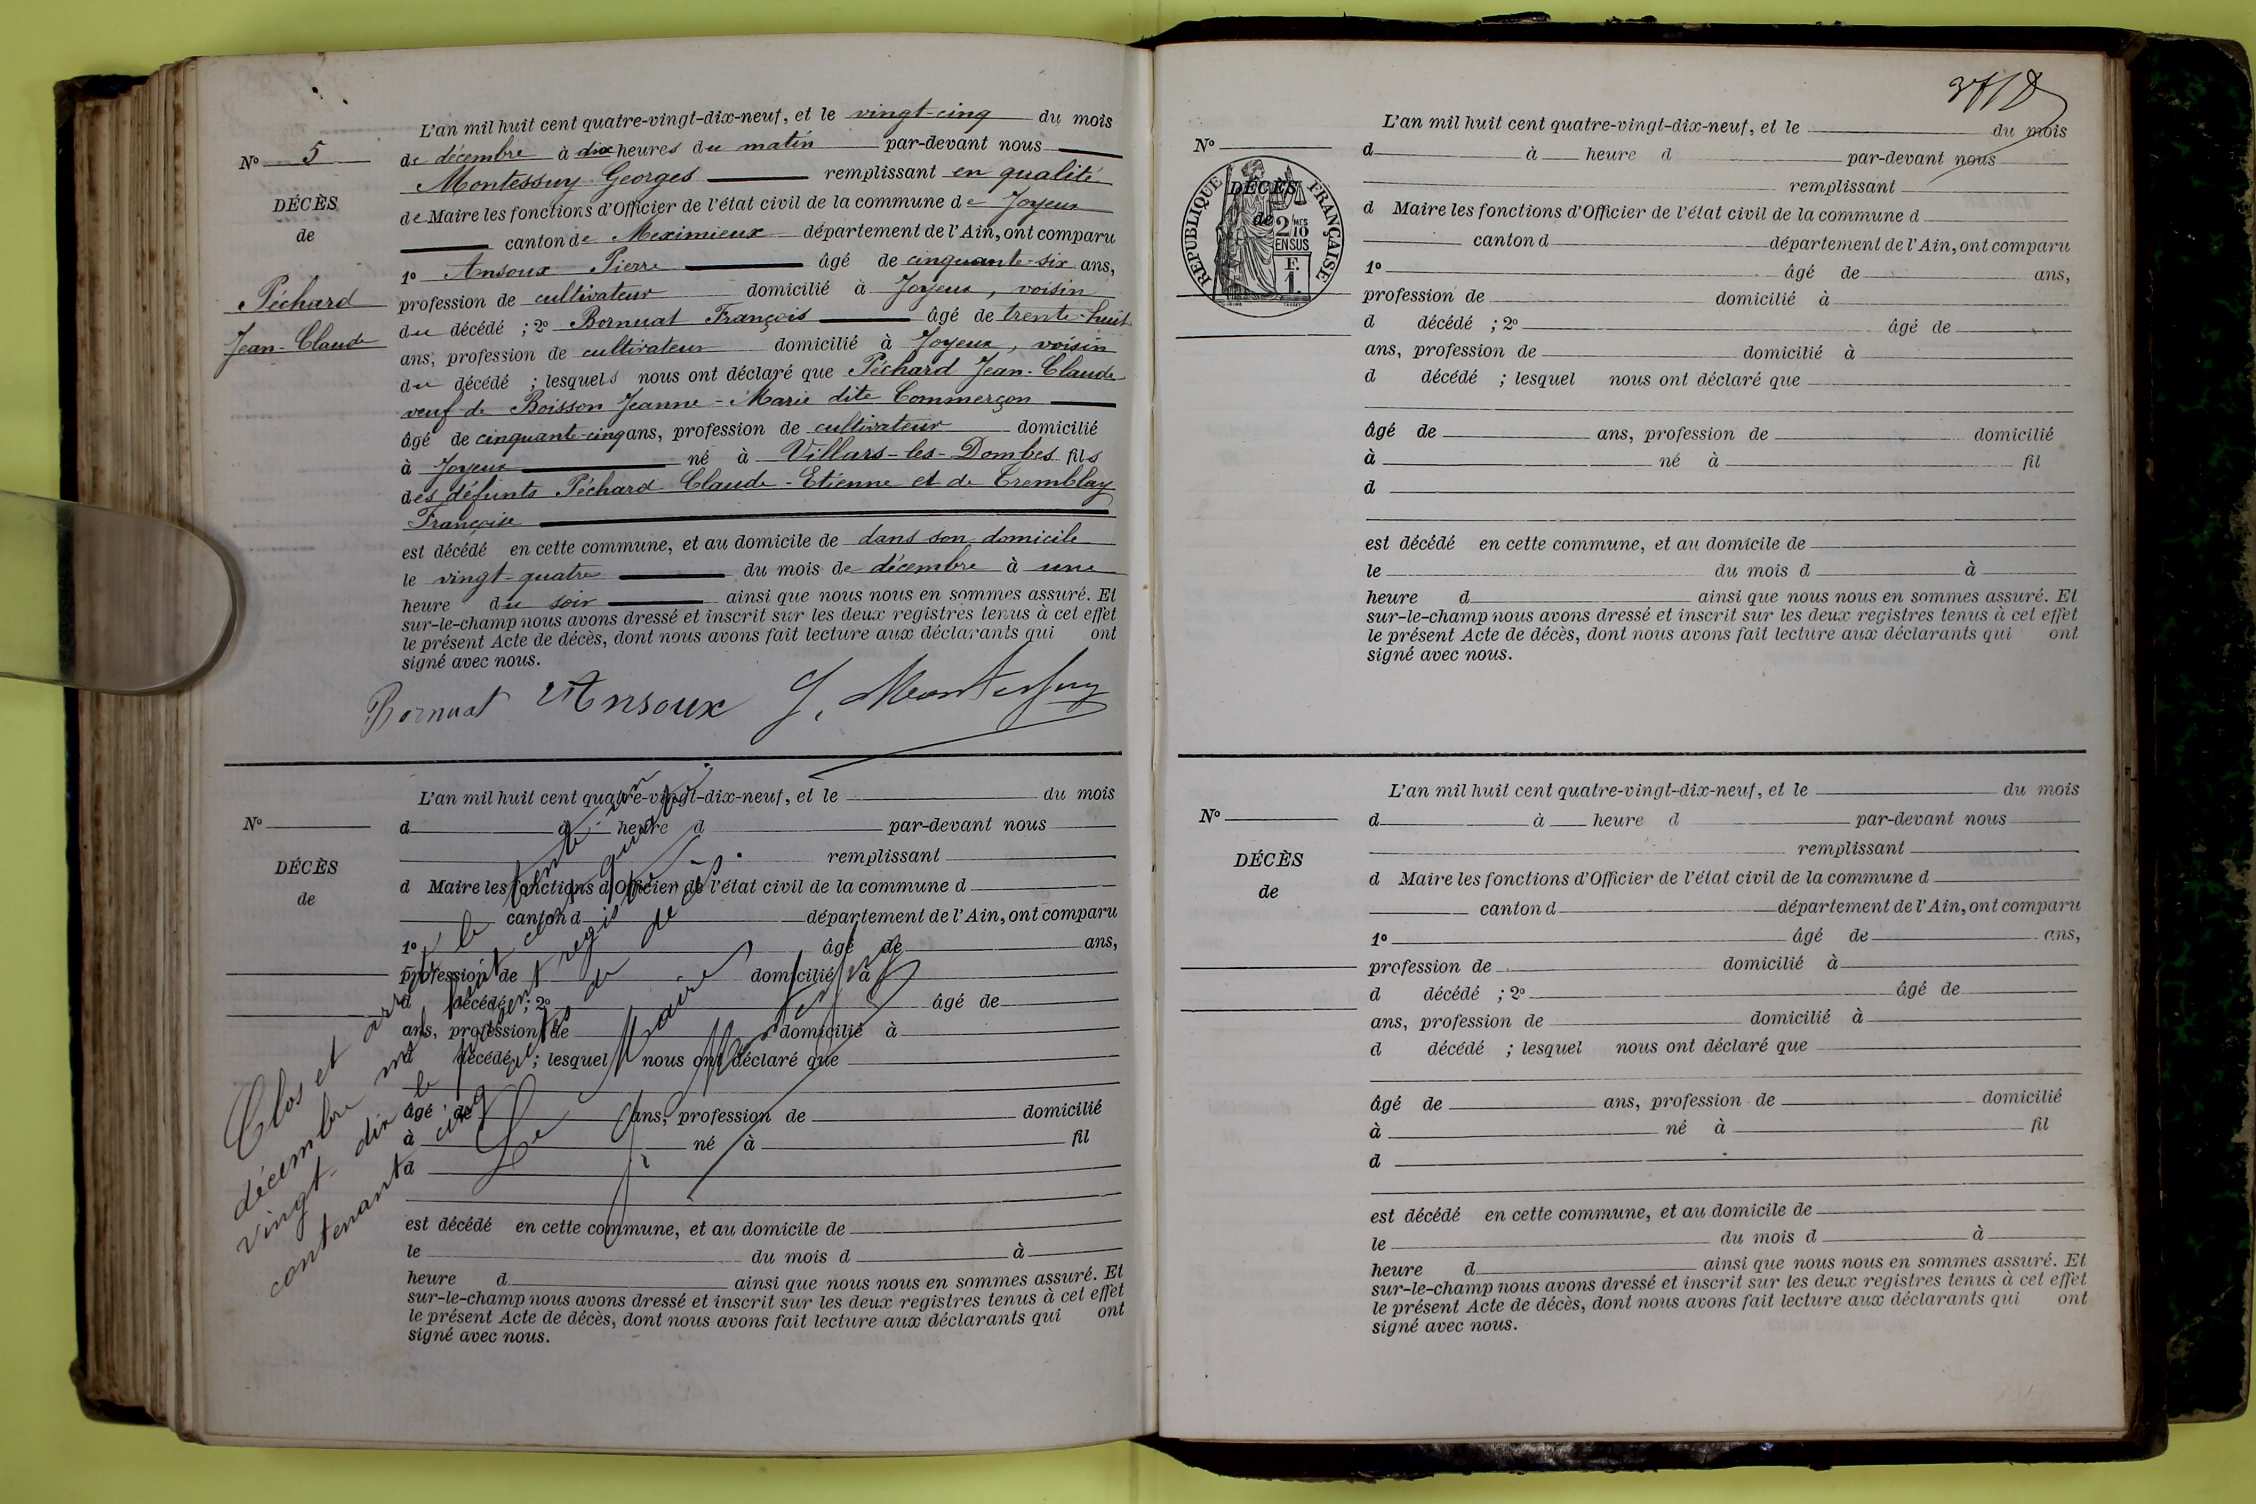 L'an mil huit cent quatre-vingt-dix-neuf, et le vingt-cinq du mois
de décembre à dix heures du matin par-devant nous
Montessuy Georges remplissant en qualité
de Maire les fonctions d'Officier de l'état civil de la commune de Joyeux
canton de Meximieux département de l'Ain, ont comparu
1º Ansoux Pierre âgé de cinquante-six ans,
profession de cultivateur domicilié à Joyeux, voisin
du décédé ; 2º Bornuat François âgé de trente-huit
ans, profession de cultivateur domicilié à Joyeux, voisin
du décédé ; lesquels nous ont déclaré que Péchard Jean-Claude
veuf de Boisson Jeanne-Marie dite Commerçon
âgé de cinquante-cinq ans, profession de cultivateur domicilié
à Joyeux né à Villars-les-Dombes fils
des défunts Péchard Claude-Etienne et de Tremblay
Françoise
est décédé en cette commune, et au domicile de dans son domicile
le vingt-quatre du mois de décembre à une
heure du soir ainsi que nous nous en sommes assuré. Et
sur-le-champ nous avons dressé et inscrit sur les deux registres tenus à cet effet
le présent Acte de décès, dont nous avons fait lecture aux déclarants qui ont
signé avec nous.
Bornuat Ansoux G. Montessuy
Nº 5
DÉCÈS
de
Péchard
Jean-Claude
L'an mil huit cent quatre-vingt-dix-neuf, et le du mois
d à heure d par-devant nous
remplissant
d Maire les fonctions d'Officier de l'état civil de la commune d
canton d département de l'Ain, ont comparu
1º âgé de ans,
profession de domicilié à
d décédé ; 2º âgé de
ans, profession de domicilié à
d décédé ; lesquel nous ont déclaré que
âgé de ans, profession de domicilié
à né à fil
d
est décédé en cette commune, et au domicile de
le du mois d à
heure d ainsi que nous nous en sommes assuré. Et
sur-le-champ nous avons dressé et inscrit sur les deux registres tenus à cet effet
le présent Acte de décès, dont nous avons fait lecture aux déclarants qui ont
signé avec nous.
Nº
DÉCÈS
de
Clos et arrêté le trente un
décembre mil huit cent quatre
vingt-dix le présent registre
contenant cinq actes de décès.
Le Maire
G. Montessuy
L'an mil huit cent quatre-vingt-dix-neuf, et le du mois
d à heure d par-devant nous
remplissant
d Maire les fonctions d'Officier de l'état civil de la commune d
canton d département de l'Ain, ont comparu
1º âgé de ans,
profession de domicilié à
d décédé ; 2º âgé de
ans, profession de domicilié à
d décédé ; lesquel nous ont déclaré que
âgé de ans, profession de domicilié
à né à fil
d
est décédé en cette commune, et au domicile de
le du mois d à
heure d ainsi que nous nous en sommes assuré. Et
sur-le-champ nous avons dressé et inscrit sur les deux registres tenus à cet effet
le présent Acte de décès, dont nous avons fait lecture aux déclarants qui ont
signé avec nous.
Nº
DÉCÈS
de
RÉPUBLIQUE FRANÇAISE
2/MES
10
EN SUS
F.
1.
L'an mil huit cent quatre-vingt-dix-neuf, et le du mois
d à heure d par-devant nous
remplissant
d Maire les fonctions d'Officier de l'état civil de la commune d
canton d département de l'Ain, ont comparu
1º âgé de ans,
profession de domicilié à
d décédé ; 2º âgé de
ans, profession de domicilié à
d décédé ; lesquel nous ont déclaré que
âgé de ans, profession de domicilié
à né à fil
d
est décédé en cette commune, et au domicile de
le du mois d à
heure d ainsi que nous nous en sommes assuré. Et
sur-le-champ nous avons dressé et inscrit sur les deux registres tenus à cet effet
le présent Acte de décès, dont nous avons fait lecture aux déclarants qui ont
signé avec nous.
Nº
DÉCÈS
de